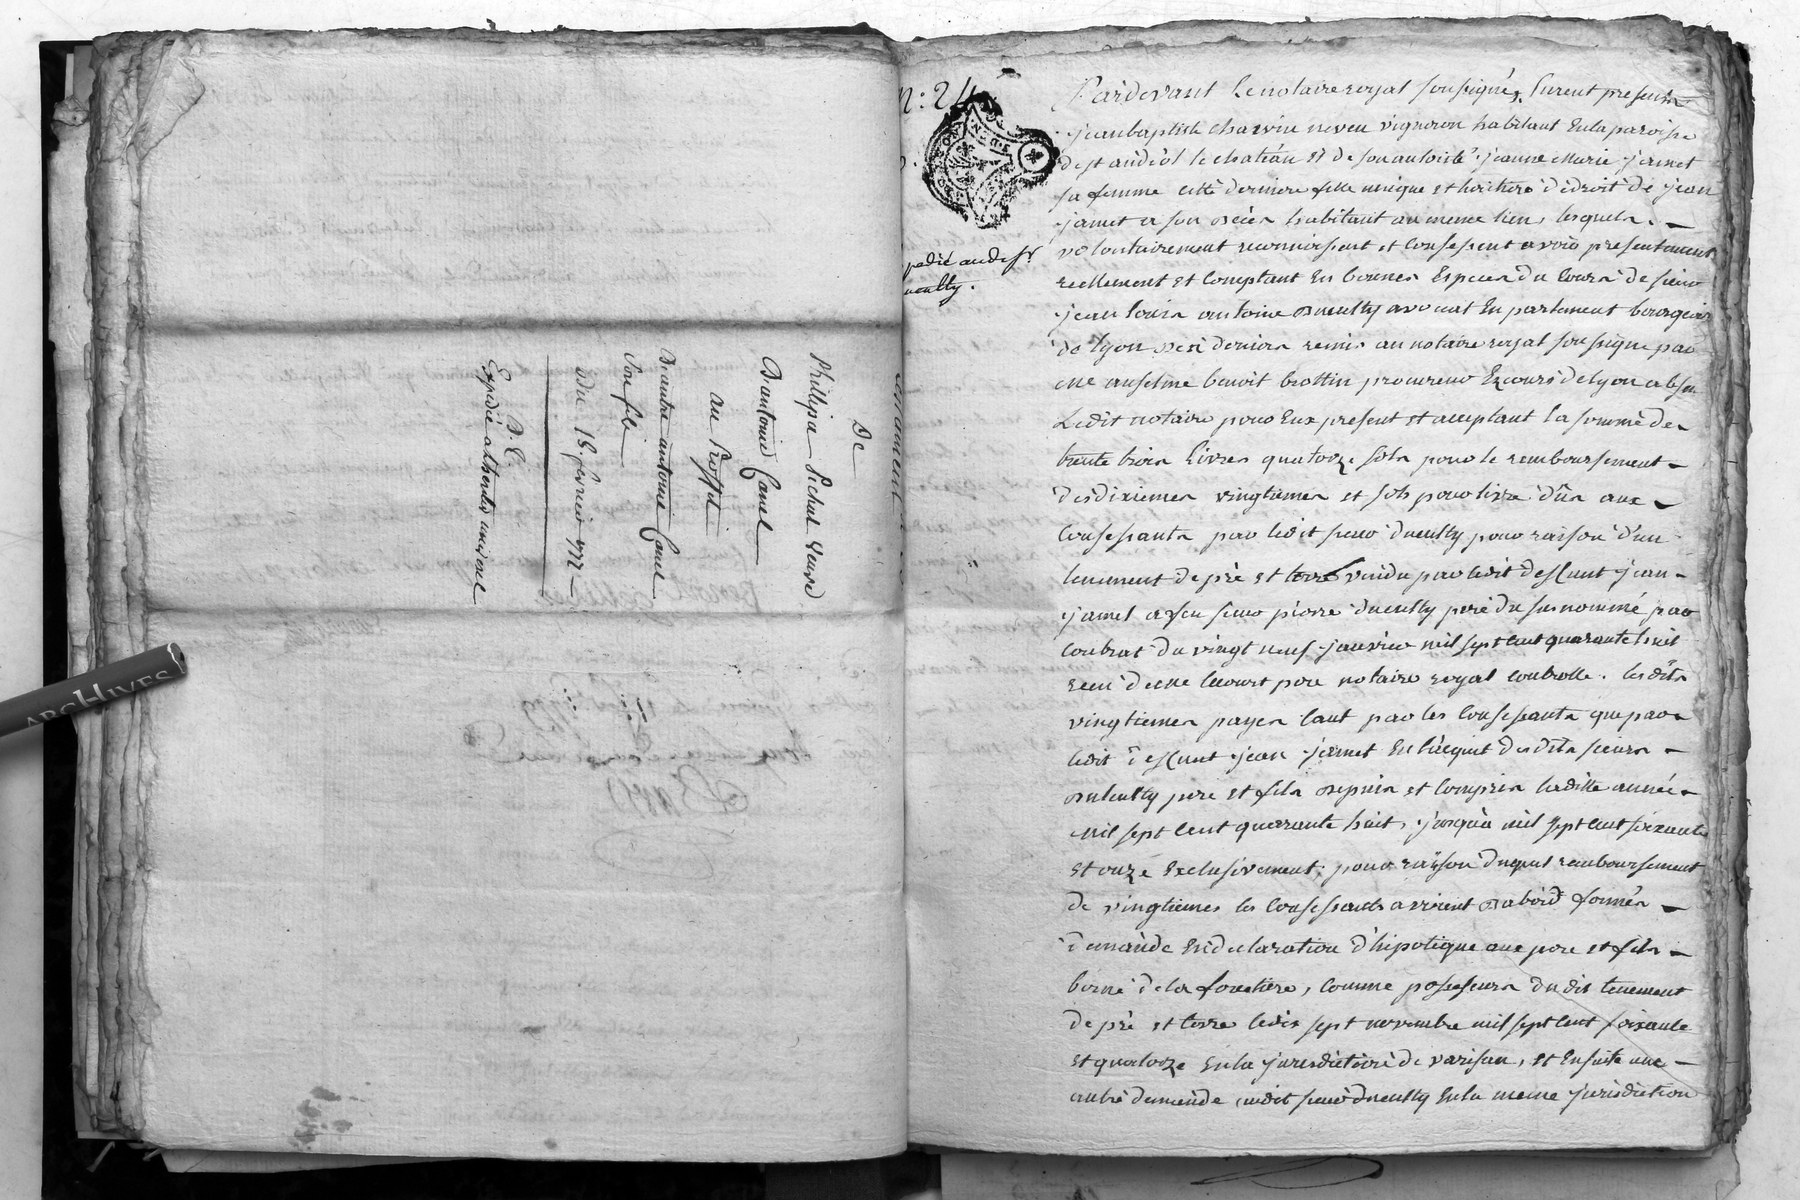 testament
De
Phillipa Pichat veuve
D'antoine Camel
au Proffit
D'autre antoine Camel
Son fils
Du 18. fevrier 177
D. C.
Expedié
N: 24
pedié audesr
neuilly.
Pardevant le notaire royal soussigné, furent presents
jean baptiste charvin neveu vigneron habitant en la paroisse
de st andéol le chateau et de son autorité jeanne Marie jamet
sa femme cette derniere fille unique et heritiere de droit de jean
jamet a son deces habitant au meme lieu, lesquels
volontairement reconnoissent et confessent avoir presentement
reellement et comptant en bonnes Especes du cours de sieur
jean louis antoine dneuilly avocat En parlement bourgeois
de lyon des deniers remis au notaire royal soussigné par
me anselme benoit brottin procureur Ez cours de lyon absent
Ledit notaire pour Eux present et acceptant la somme de
trente trois livres quatorze sols pour le remboursement
des dixiemes vingtiemes et sols pour livre dûs aux
Confessants par ledit sieur dneuilly pour raison d'un
tenement de pré et terre vendu par ledit deffunt jean
jamet a feu sieur pierre dneuilly pere du susnommé par
contrat du vingt neuf janvier mil sept cent quarante huit
recu de me lecourt pere notaire royal controllé. lesdits
vingtiemes payes tant par les confessants que par
ledit deffunt jean jamet En l'acquit desdits sieurs
dneuilly pere et fils depuis et compris ladite année
mil sept cent quarante huit, jusqu'a mil sept cent soixante
et onze Exclusivement; pour raison duquel remboursement
de vingtiemes les confessants avoient dabord formés
demande En declaration d'hipotique aux pere et fils
borne de la forestiere, comme possesseurs dudit tenement
de pré et terre ledit sept novembre mil sept cent soixante
et quatorze En la jurisdiction de varisan, et Ensuite une
autre demande audit sieur dneuilly En la meme jurisdiction